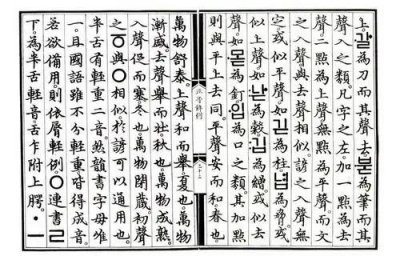 上。갈為刀而其聲去。붇為筆而其
聲入之類。凡字之左。加一點為去
聲。二點為上聲。無點為平聲。而文
之入聲。與去聲相似。諺之入聲無
定。或似平聲。如긷為柱。녑為脅。或
似上聲。如낟為穀。깁為繒。或似去
聲。如몯為釘。입為口之類。其加點
則與平上去同。平聲安而和。春也。
正音解例 二十二
萬物舒泰。上聲和而擧。夏也。萬物
漸盛。去聲擧而壯。秋也。萬物成熟。
入聲促而塞。冬也。萬物閉藏。初聲
之ㆆ與ㅇ相似。於諺可以通用也。
半舌有輕重二音。然韻書字母唯
一。且國語雖不分輕重。皆得成音。
若欲備用。則依脣輕例。ㅇ連書ㄹ
下。為半舌輕音。舌乍附上腭。ㆍㅡ